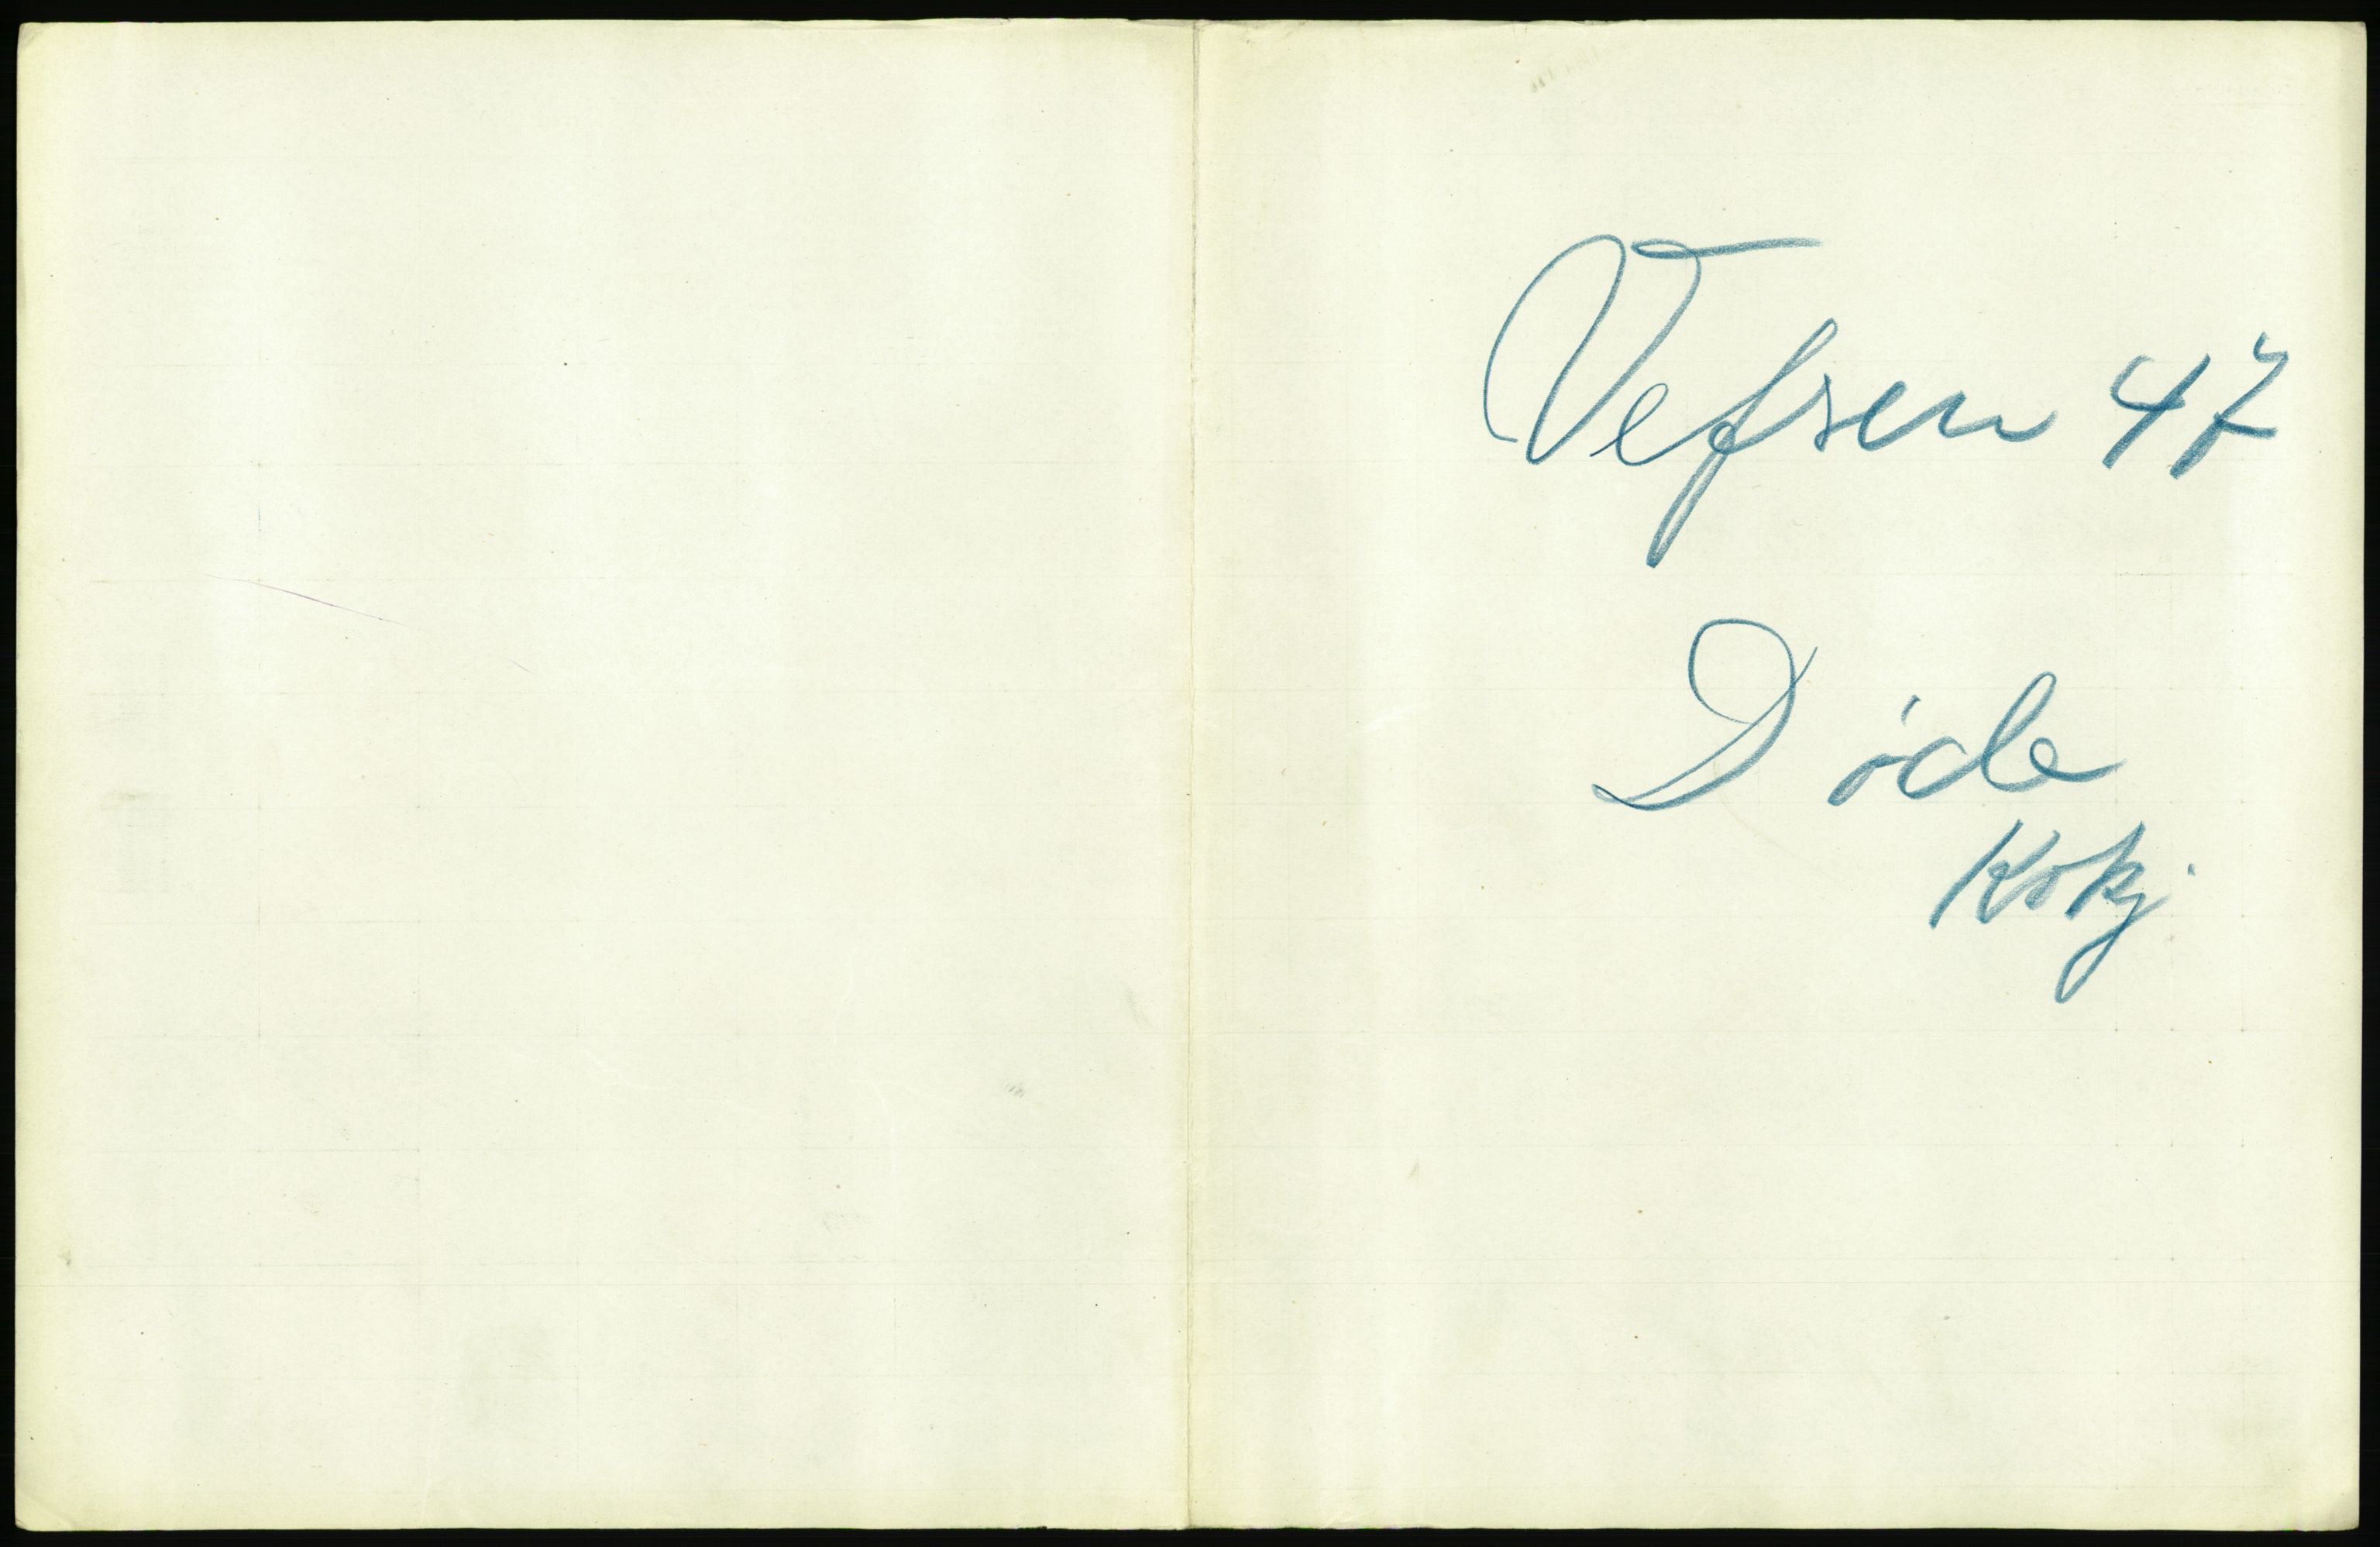 Vefsen 47
Døde